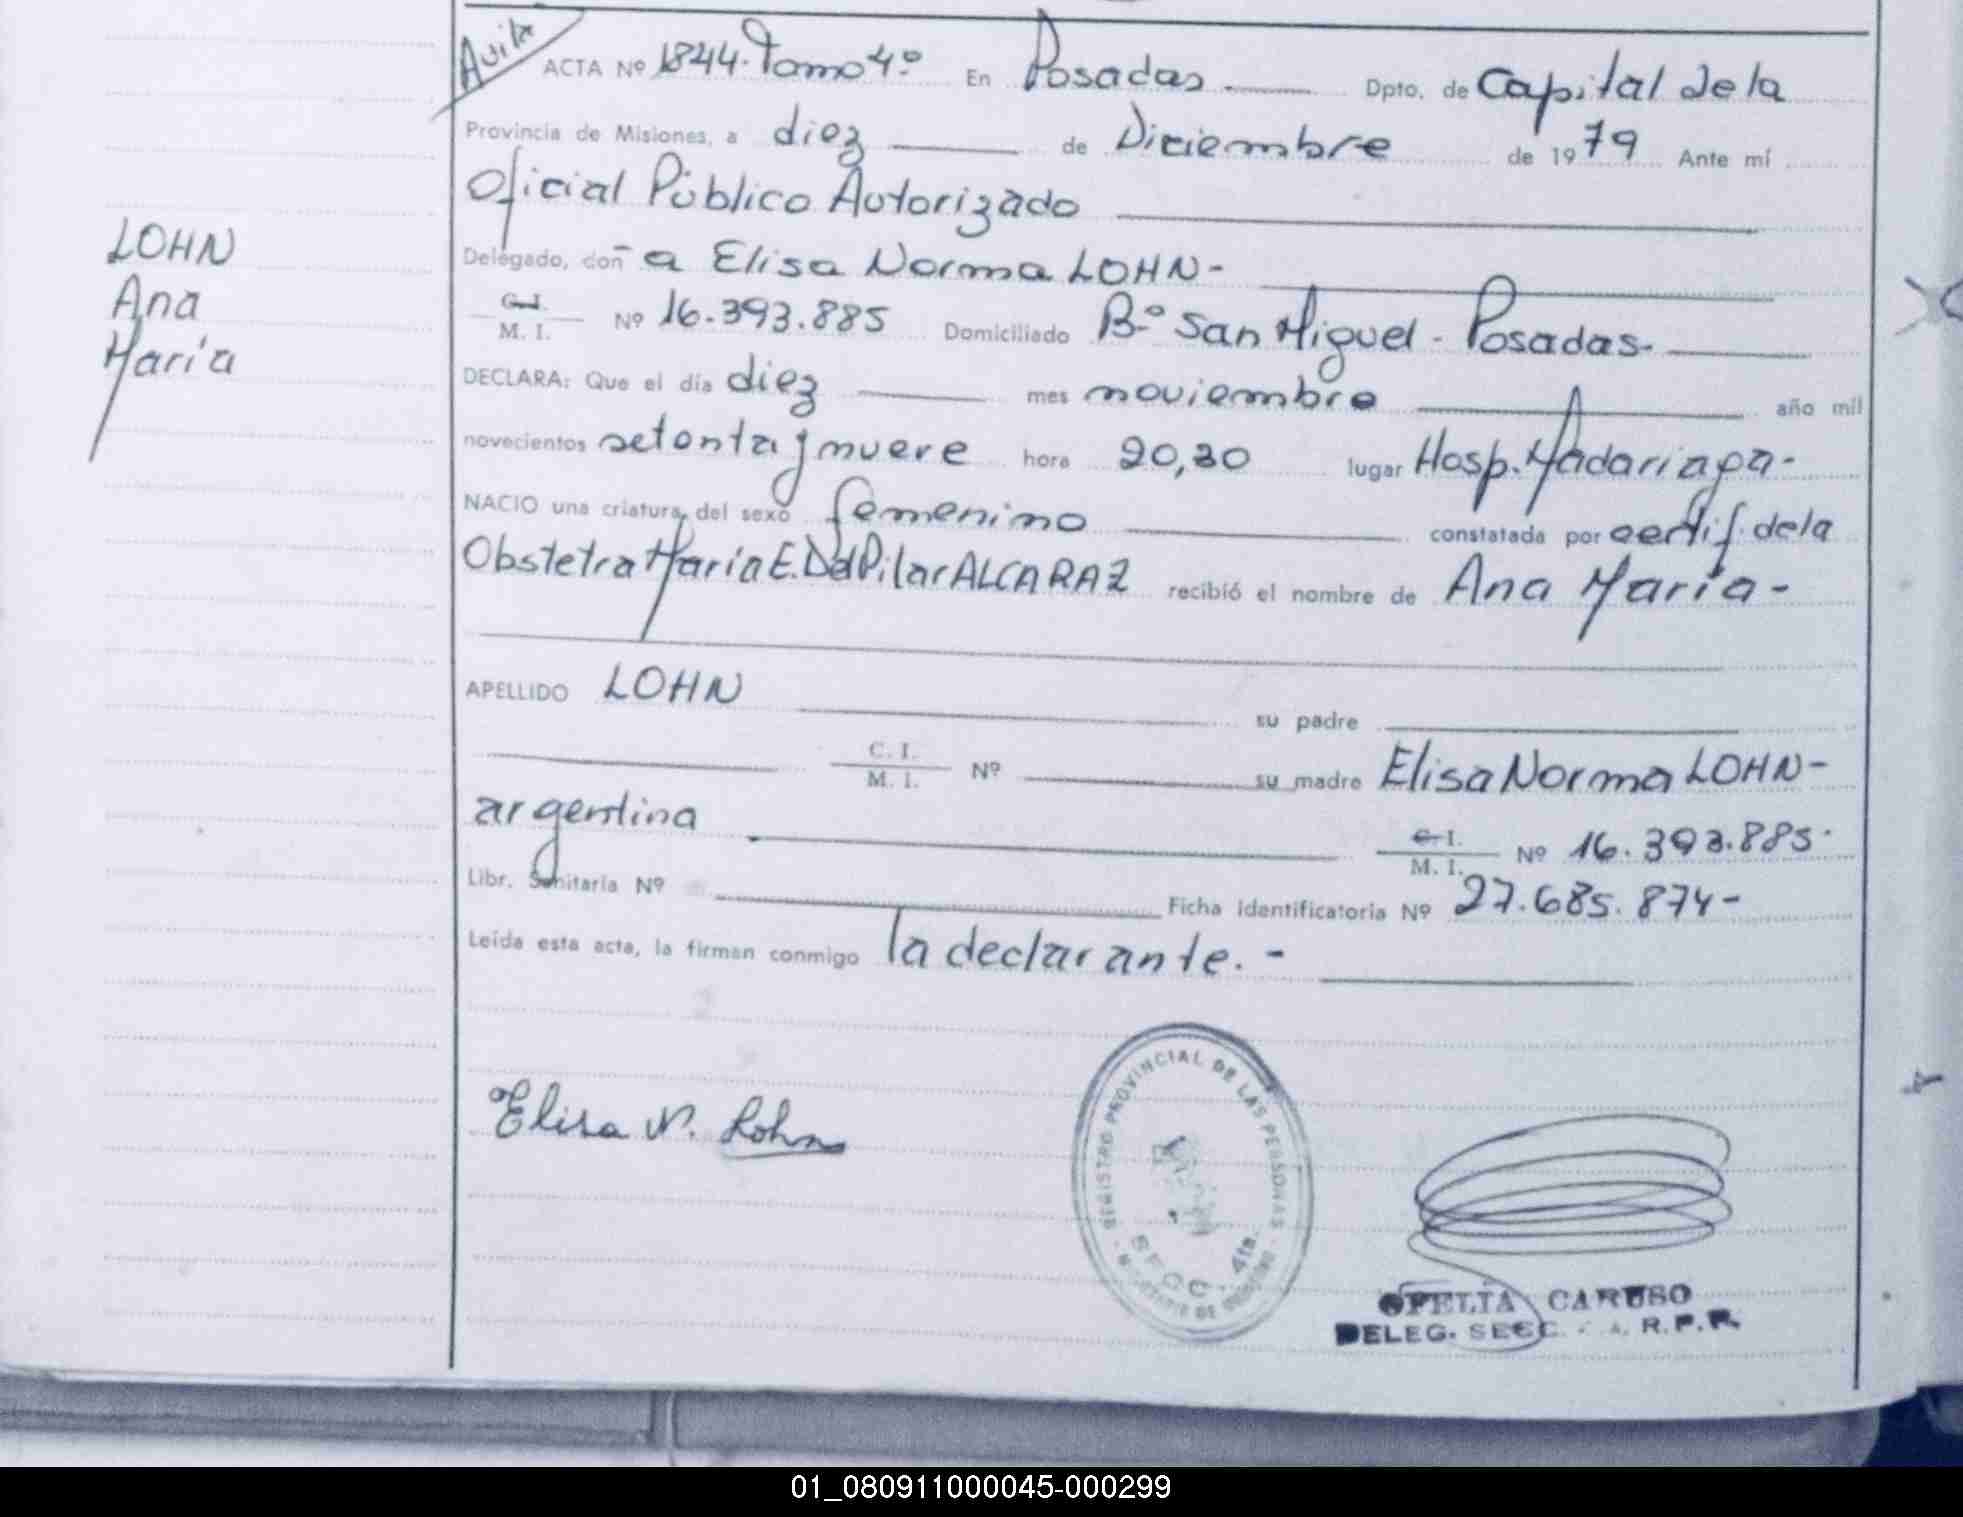 Avila
ACTA Nº 1844. Tomo 4º En Posadas Dpto. de Capital de la
Provincia de Misiones, a diez de Diciembre de 1979 Ante mí
Oficial Público Autorizado
Delegado, don̄a Elisa Norma LOHN-
LOHN
Ana
María
C. I.
M. I. Nº 16.393.885 Domiciliado Bº San Miguel - Posadas.
DECLARA: Que el día diez mes noviembre año mil
novecientos setenta y nueve hora 20,30 lugar Hosp. Madariaga-
NACIO una criatura del sexo femenino constatada por certif. de la
Obstetra María E. Del Pilar ALCARAZ recibió el nombre de Ana María-
APELLIDO LOHN su padre
C. I.
M. I. Nº su madre Elisa Norma LOHN-
argentina C. I.
M. I. Nº 16.393.885.
Libr. Sanitaria Nº Ficha Identificatoria Nº 27.685.874-
Leída esta acta, la firman conmigo la declarante.-
Elisa N. Lohn
REGISTRO PROVINCIAL DE LAS PERSONAS
SECC. 4ta.
OFELIA CARUSO
DELEG. SECC. R.P.P.
01_080911000045-000299